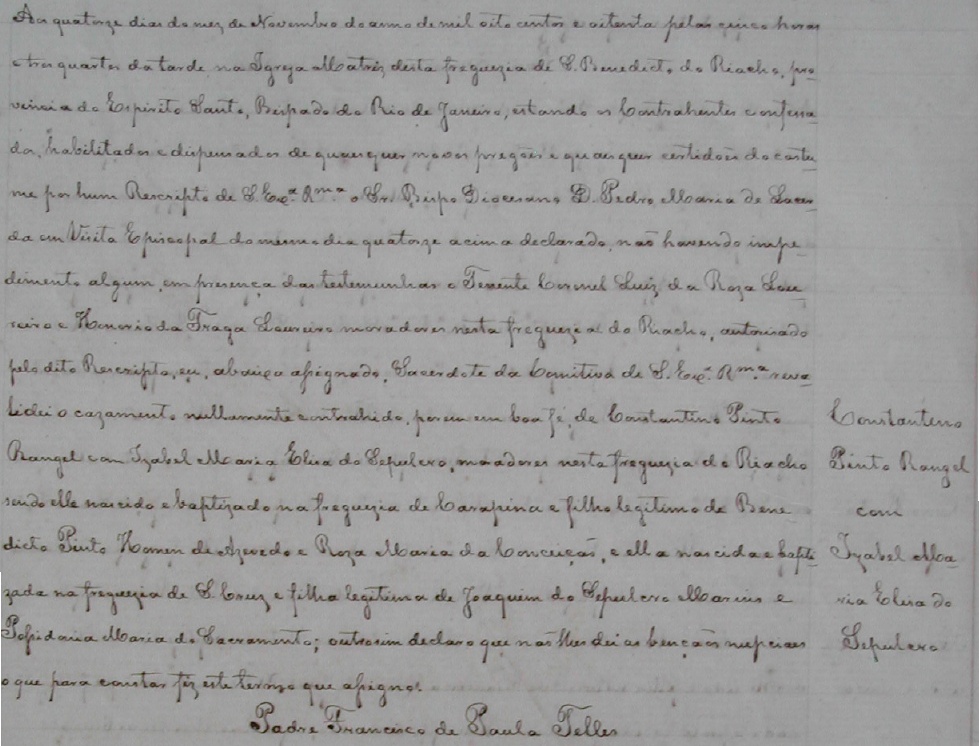 Aos quatorze dias do mez de Novembro do anno de mil oito centos e oitenta pelas cinco horas
e tres quartos da tarde, na Igreja Matriz desta freguezia de S. Benedicto do Riacho, pro-
vincia do Espirito Santo, Bispado do Rio de Janeiro, estando os Contrahentes confessa-
dos, habilitados e dispensados de quaesquer novos pregões e quaesquer certidões do costu
me por hum Rescripto de S. Exª. Rmª o Sr. Bispo Diocesano D. Pedro Maria de Lacer-
da em Visita Episcopal do mesmo dia quatorze acima declarado, não havendo impe-
dimento algum, em presença das testemunhas o Tenente Coronel Luiz da Roza Lou-
reiro e Honorio da Fraga Loureiro moradores nesta freguezia do Riacho, autorisado
pelo dito Rescripto, eu, abaixo assignado, Sacerdote da Comitiva de S. Exª. Rmª. reva-
lidei o cazamento nullamente contrahido, porem em boa fé, de Constantino Pinto
Rangel com Izabel Maria Elisa do Sepulcro, moradores nesta freguezia do Riacho
sendo elle nascido e baptizado na freguezia de Carapina e filho legitimo de Bene
dicto Pinto Homem de Azevedo e Roza Maria da Conceição, e ella nascida e bapti
zada na freguezia de S. Cruz e filha legitima de Joaquim do Sepulcro e
Maria do Sacramento; outrosim declaro que não lhes dei as bençãos nupciaes
o que para constar fiz este termo que assigno.
Padre Francisco de Paula Telles
Constanteno
Pinto Rangel
com
Izabel Ma-
ria Elisa do
Sepulcro